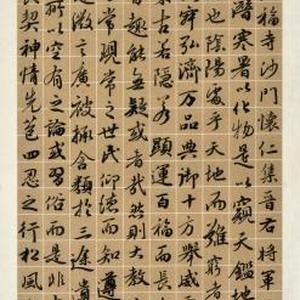 福寺沙門懷仁集晉右將軍
潛寒暑以化物是以窺天鑑地
也陰陽處乎天地而難窮者
宰弘濟万品典御十方舉威
古若隱若顯運百福而長
旨趣能無疑或者哉然則大教
常現常之世民仰德而知遵
是微言廣被拯含類於三途遺
所以空有之論或習俗而是非
契神情先苞四忍之行松風